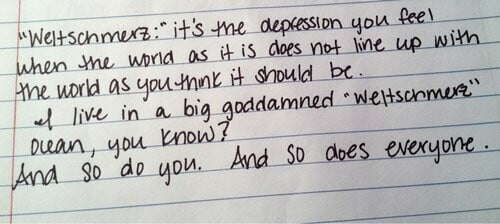 "Weltschmerz:" it's the depression you feel
when the world as it is does not line up with
the world as you think it should be.
I live in a big goddamned "Weltschmerz"
ocean, you know?
And so do you. And so does everyone.